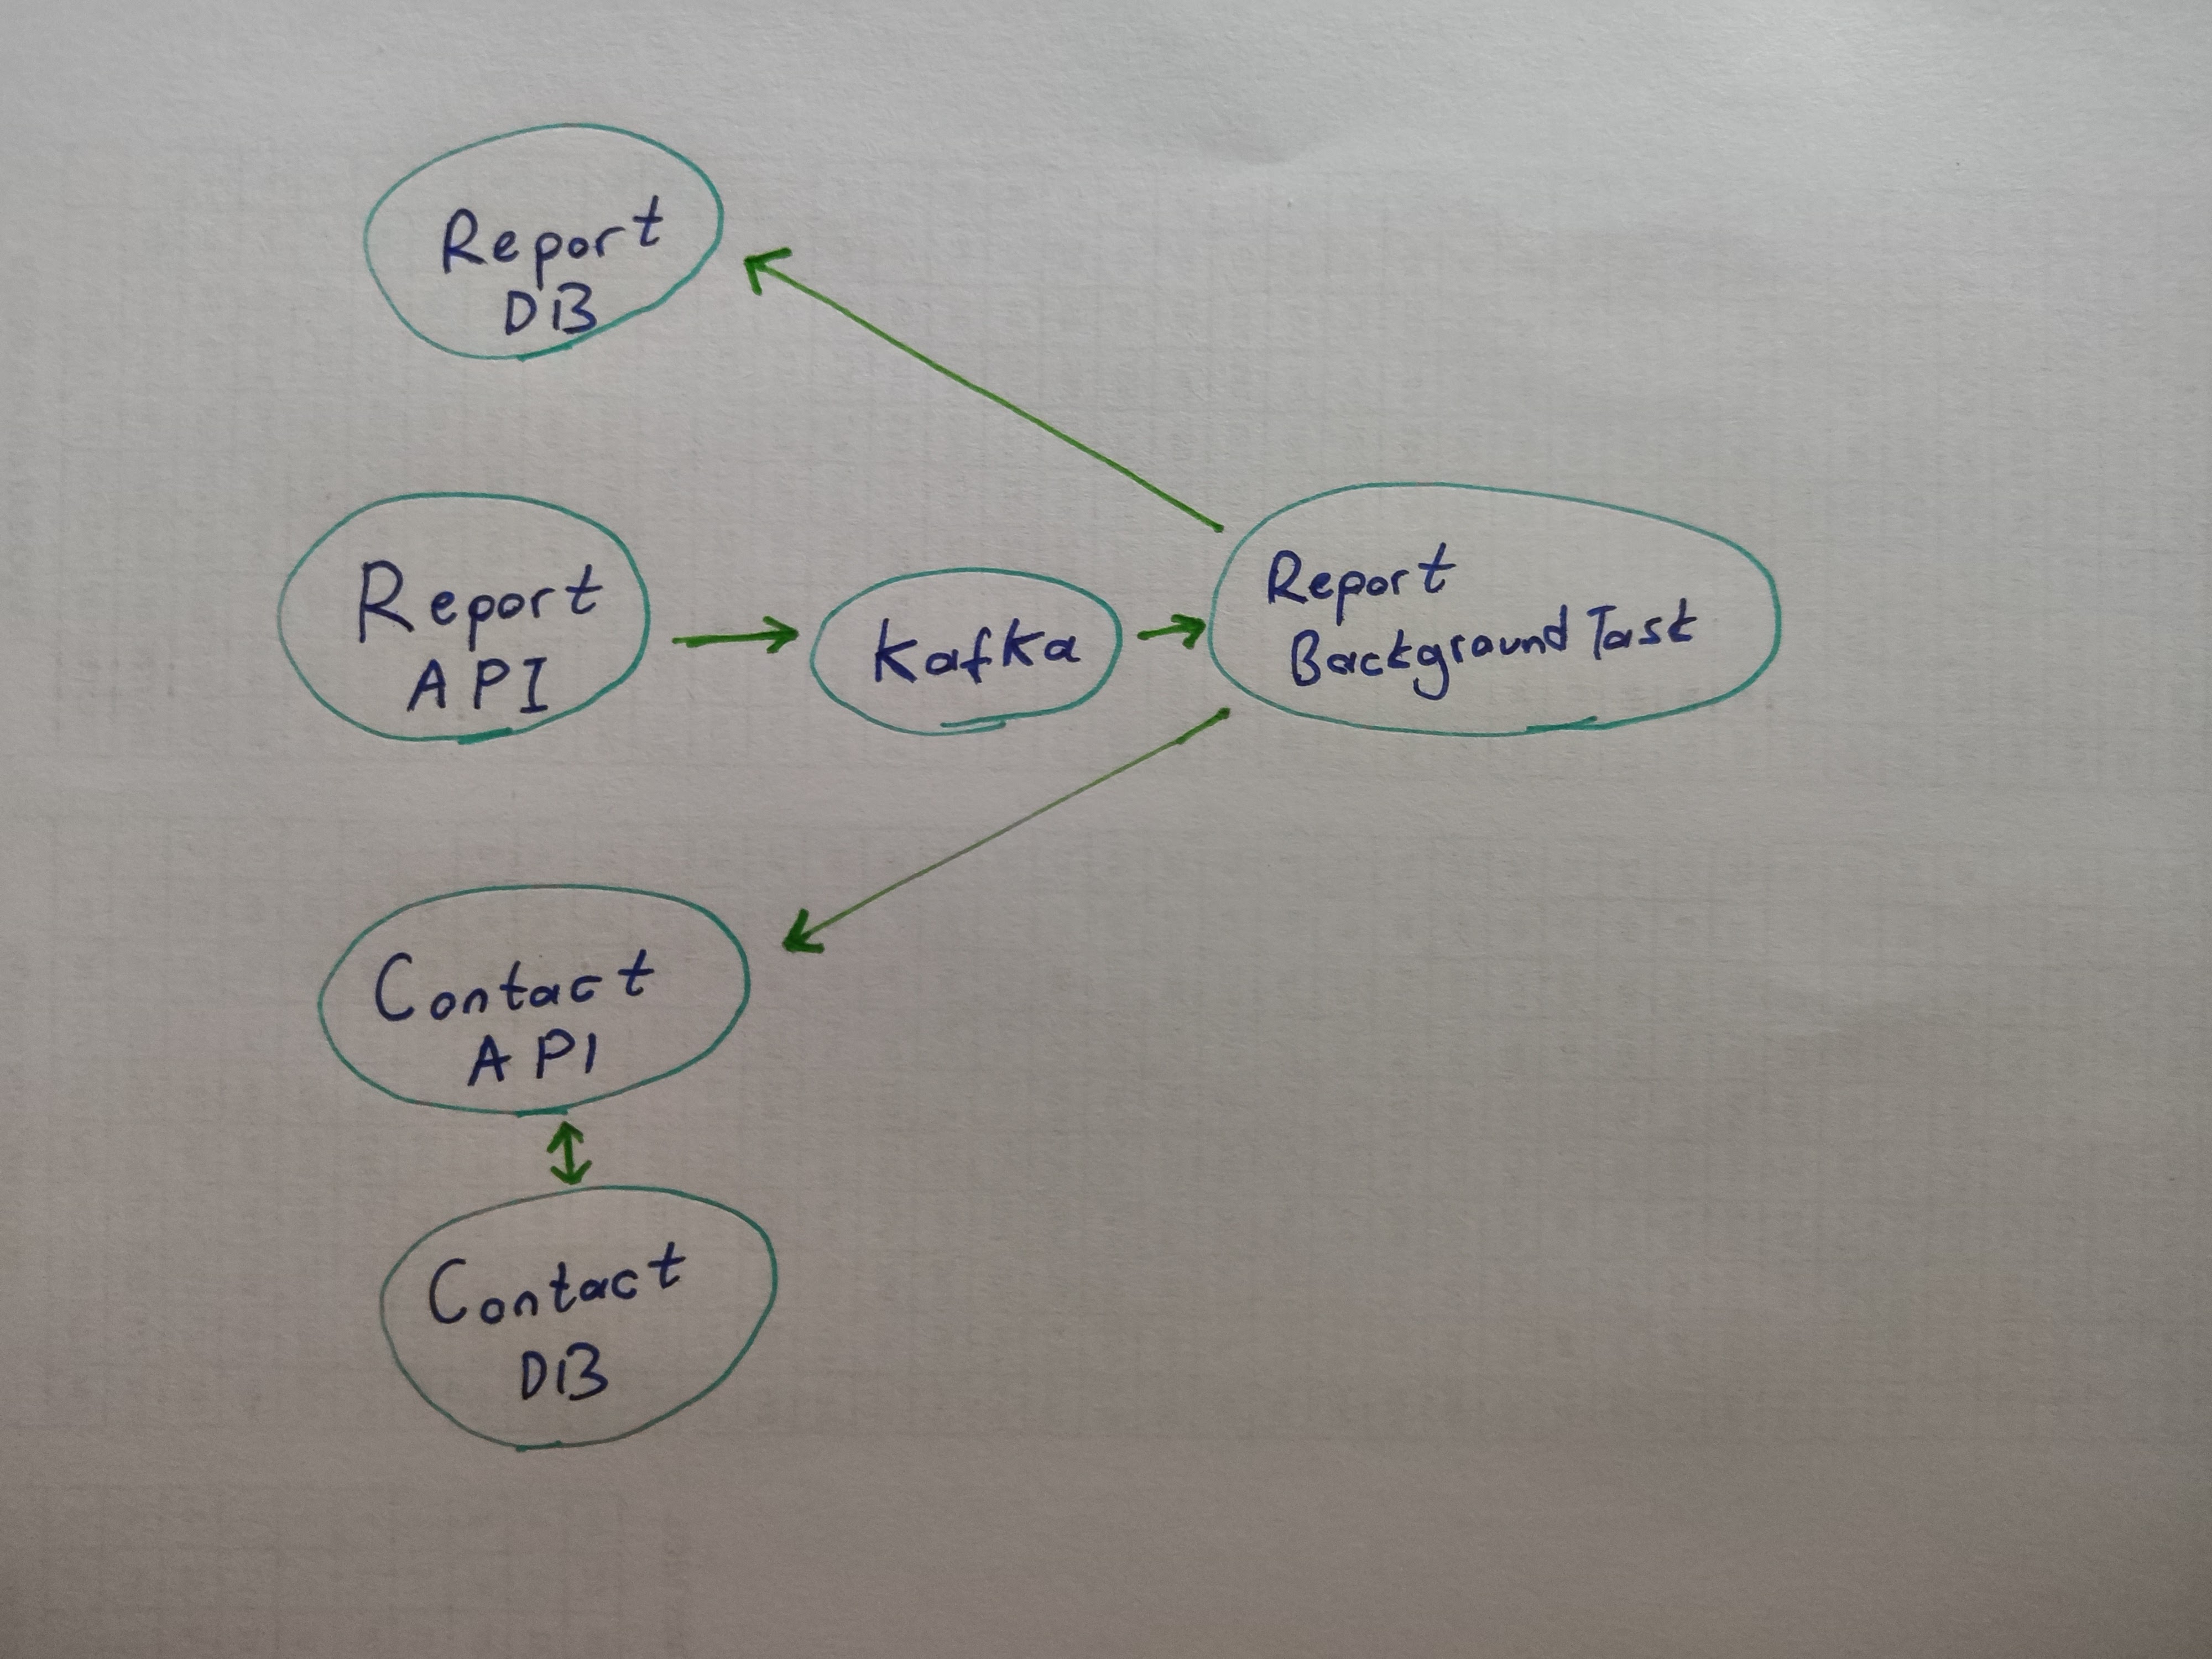 Report
DB
Report
API
Kafka
Report
Background Task
Contact
API
Contact
DB